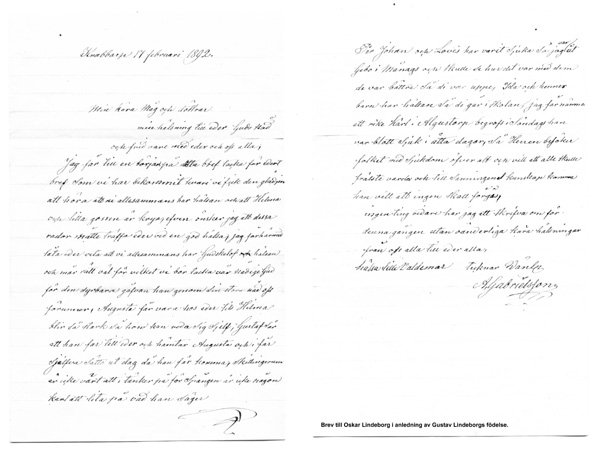 Knabbarp 17 februari 1892.
Min kära Måg och dotter
min hälsning till eder Guds Nåd
och frid vare med eder och oss alla,
Jag får till en början tacka för Edert
bref som vi har bekommit hvari vi fick den glädjen
att höra att ni allesammans har hälsan och att Hilma
och lilla gossen är krya, äfven önskar jag att dessa
rader måtte träffa eder vid en god hälsa, jag får härmed
låta eder veta att vi allesammans har Gudskelof hälsan
och mår väl för vilket vi bör tacka vår nådige Gud
för den dyrbara gåfvan han genom sin
förunnar, Augusta får vara hos eder till Hilma
blir så stark så hon kan reda sig sjelf, Gustaf får
att han far till eder och hämtar Augusta och i får
sjelfva sätta ut dag da han får komma,
är icke värt att i tänker på för är icke någon
karl att lita på vad han säger
Per Johan och Lovis har varit sjuka så jag var ut
och hur det var med dem
de var bättre så de var uppe, Ida och hennes
barn har hälsan så de går i skolan, jag får nämna
att Karl i Algustorp begrofs i Söndags han
var blott sjuk i åtta dagar, så Herren besöker
folket med Sjukdom öfver alt och vill att alla skulle
frälsta varda och till Sanningens kunskap komma
han vill att ingen skall förgås,
ingen ting vidare har jag att skrifva om för
denna gången utan oänderliga kära hälsningar
från oss alla till eder alla,
hälsa lilla Valdemar tecknar Vänligen
A Gabrielsson,
Brev till Oskar Lindeborg i anledning av Gustav Lindeborgs födelse.